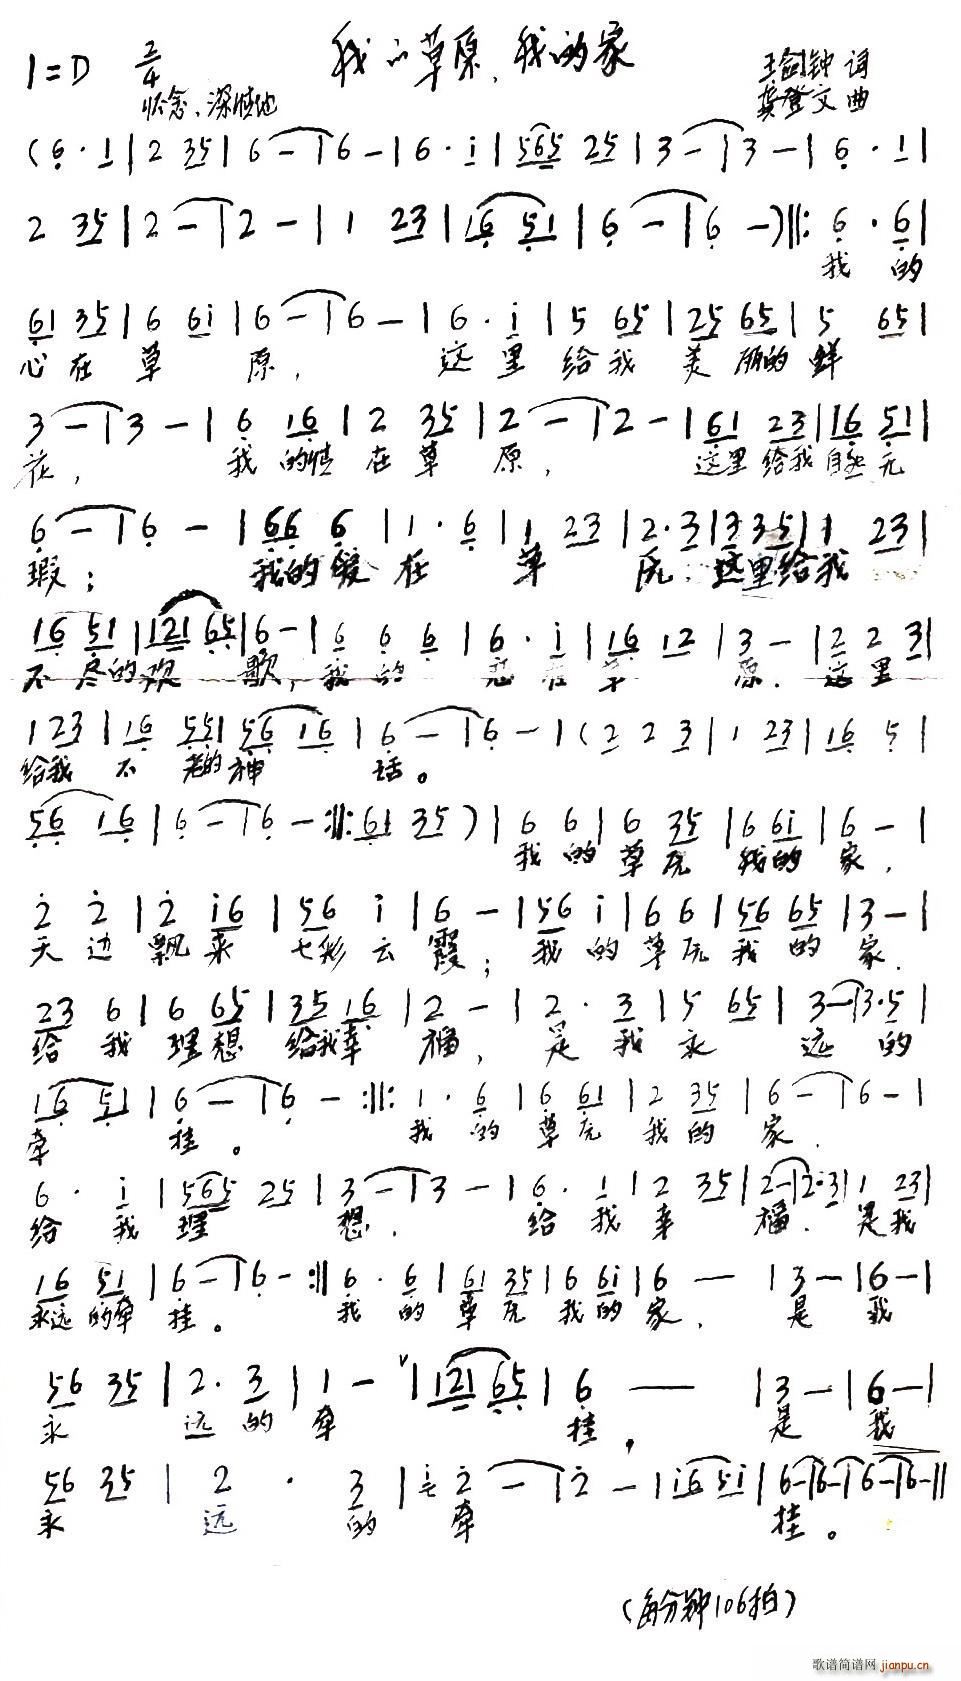 我的草原,我的家
1=D 2/4 王剑钟 词
怀念、深情地 龚登文 曲
(6·1|2 35|6-|6-|6·i|565 25|3-|3-|6·1|
2 35|2-|2-|1 23|16 51|6-|6-)‖:6·6|
我的
61 35|6 6i|6-|6-|6·i|5 65|25 65|5 65|
心在草原,这里给我美丽的鲜
3-|3-|6 16|2 35|2-|2-|61 23|16 51|
花,我的情在草原,这里给我自然无
6-|6-|66 6|1·6|1 23|2·3|3 35|1 23|
瑕;我的爱在草原,这里给我
16 51|121 65|6-|6 6 6|6·i|16 12|3-|2 2 3|
不尽的欢歌,我的 在草原.这里
1 23|16 55|56 16|6-|6-|(2 2 3|1 23|16 5|
给我不老的神话。
56 16|6-|6-:‖:61 35)|6 6|6 35|6 6i|6-|
我的草原我的家,
2 2|2 i6|56 i|6-|56 i|6 6|56 65|3-|
天边飘来七彩云霞;我的草原我的家.
23 6|6 65|35 16|2-|2·3|5 65|3-|3·5|
给我理想给我幸福,是我永远的
16 51|6-|6-:‖:1·6|6 61|2 35|6-|6-|
牵挂。我的草原我的家.
6·i|565 25|3-|3-|6·1|2 35|2-|2·3|1 23|
给我理想.给我幸福.是我
16 51|6-|6-:‖6·6|61 35|6 6i|6-|3-|6-|
永远的牵挂。我的草原我的家,是我
56 35|2·3|1-|121 65|6-|3-|6-|
永远的牵挂,是我
56 35|2·3|2-|2-|i6 5i|6-|6-|6-|6-‖
永远的牵挂。
(每分钟106拍)
歌谱简谱网 jianpu.cn